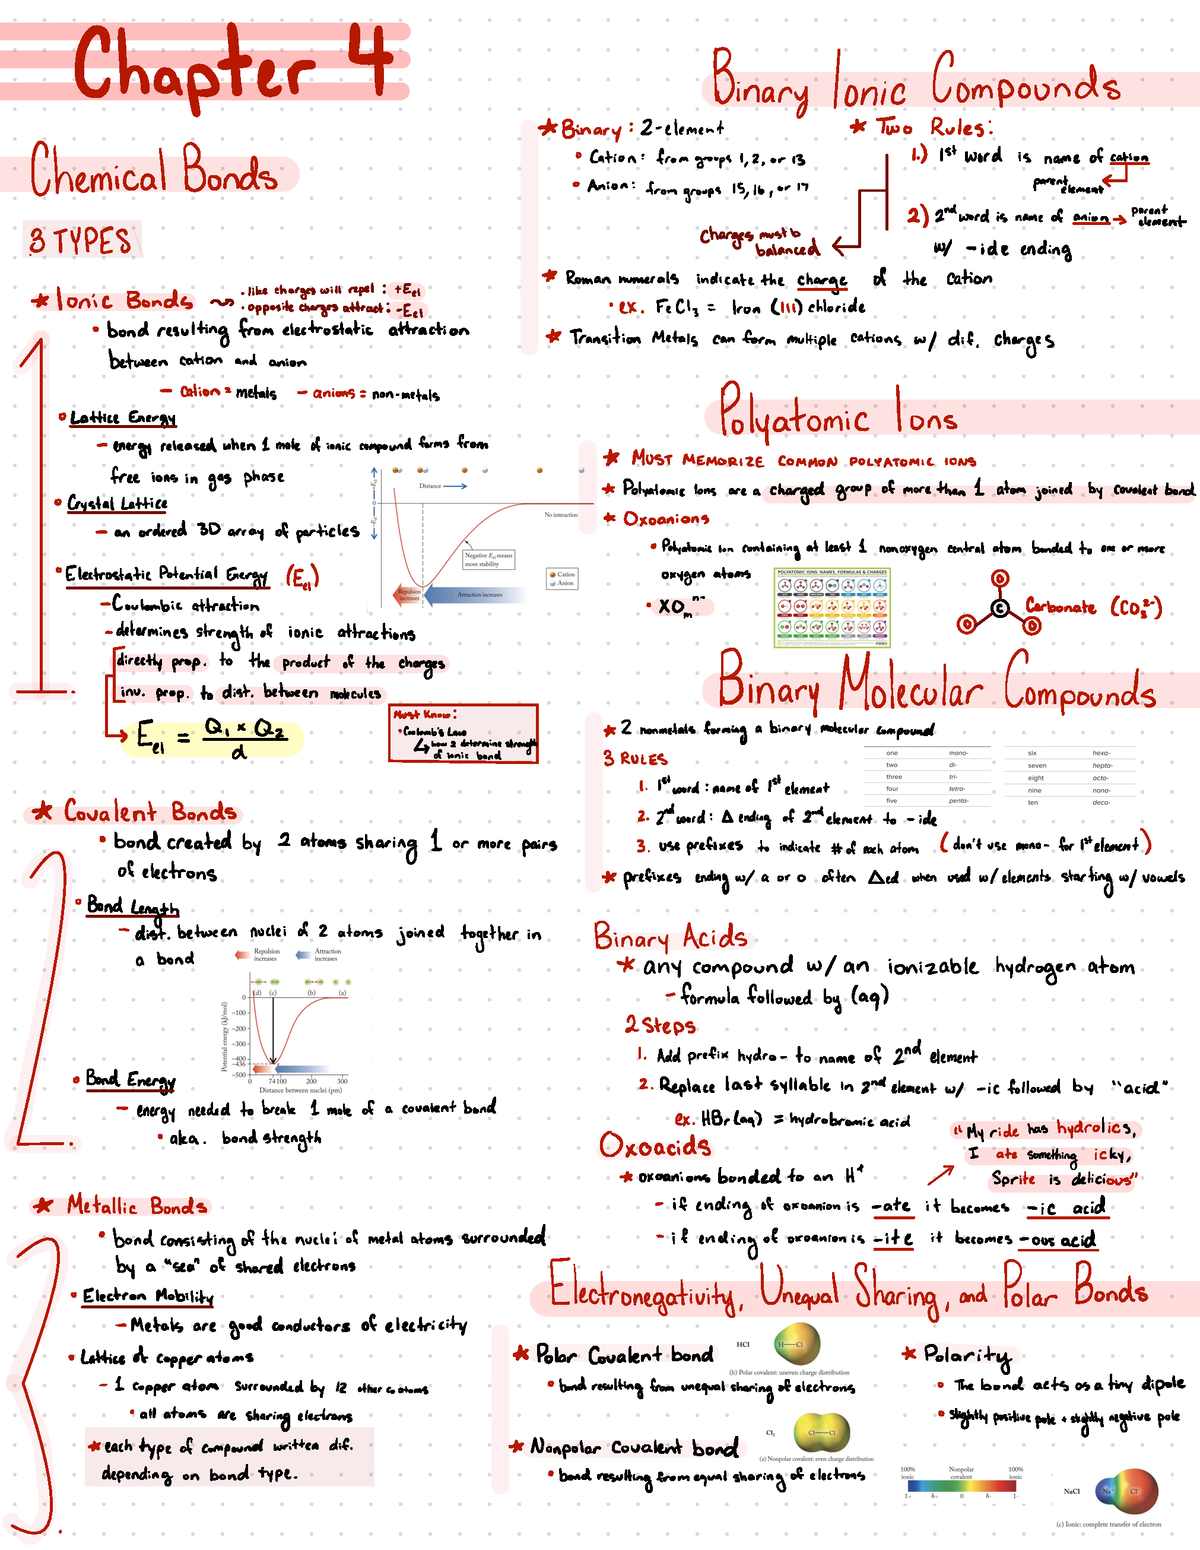 Chapter 4
Chemical Bonds
3 TYPES
* Ionic Bonds
• like charges will repel : +Eel
• opposite charges attract : -Eel
• bond resulting from electrostatic attraction
between cation and anion
- cation = metals - anions = non-metals
• Lattice Energy
- energy released when 1 mole of ionic compound forms from
free ions in gas phase
• Crystal Lattice
- an ordered 3D array of particles
• Electrostatic Potential Energy (Eel)
- Coulombic attraction
- determines strength of ionic attractions
directly prop. to the product of the charges
inv. prop. to dist. between molecules
Eel = Q1 x Q2 / d
Must Know:
• Coulomb's Law
how 2 determine strength
of ionic bond
+Eel
0
-Eel
Distance
No interaction
Negative Eel means
more stability
Cation
Anion
Repulsion
increases
Attraction increases
* Covalent Bonds
• bond created by 2 atoms sharing 1 or more pairs
of electrons
• Bond Length
- dist. between nuclei of 2 atoms joined together in
a bond
Repulsion
increases
Attraction
increases
(d) (c) (b) (a)
Potential energy (kJ/mol)
0
-100
-200
-300
-400
-436
-500
0 74 100 200 300
Distance between nuclei (pm)
• Bond Energy
- energy needed to break 1 mole of a covalent bond
• aka. bond strength
* Metallic Bonds
• bond consisting of the nuclei of metal atoms surrounded
by a "sea" of shared electrons
• Electron Mobility
- Metals are good conductors of electricity
• Lattice of copper atoms
- 1 copper atom surrounded by 12 other cu atoms
• all atoms are sharing electrons
* each type of compound written dif.
depending on bond type.
Binary Ionic Compounds
* Binary : 2-element
• Cation: from groups 1, 2, or 13
• Anion: from groups 15, 16, or 17
* Two Rules:
1.) 1st word is name of cation
parent element
2) 2nd word is name of anion → parent element
w/ -ide ending
Charges must b
balanced
* Roman numerals indicate the charge of the cation
• ex. FeCl3 = Iron (III) chloride
* Transition Metals can form multiple cations w/ dif. charges
Polyatomic Ions
* MUST MEMORIZE COMMON POLYATOMIC IONS
* Polyatomic Ions are a charged group of more than 1 atom joined by covalent bond
* Oxoanions
• Polyatomic Ion containing at least 1 nonoxygen central atom bonded to one or more
oxygen atoms
• XOm n-
POLYATOMIC IONS: NAMES, FORMULAE & CHARGES
O
C
O O
Carbonate (CO3 2-)
Binary Molecular Compounds
* 2 nonmetals forming a binary molecular compound
3 RULES
1. 1st word : name of 1st element
2. 2nd word : Δ ending of 2nd element to -ide
3. use prefixes to indicate # of each atom (don't use mono- for 1st element)
* prefixes ending w/ a or o often Δed when used w/ elements starting w/ vowels
one mono-
two di-
three tri-
four tetra-
five penta-
six hexa-
seven hepta-
eight octa-
nine nona-
ten deca-
Binary Acids
* any compound w/ an ionizable hydrogen atom
- formula followed by (aq)
2 Steps
1. Add prefix hydro- to name of 2nd element
2. Replace last syllable in 2nd element w/ -ic followed by "acid"
ex. HBr (aq) = hydrobromic acid
Oxoacids
"My ride has hydrolics,
I ate something icky,
Sprite is delicious"
* oxoanions bonded to an H+
- if ending of oxoanion is -ate it becomes -ic acid
- if ending of oxoanion is -ite it becomes -ous acid
Electronegativity, Unequal Sharing, and Polar Bonds
* Polar Covalent bond
• bond resulting from unequal sharing of electrons
HCl
H—Cl
(b) Polar covalent: uneven charge distribution
* Nonpolar Covalent bond
• bond resulting from equal sharing of electrons
Cl2
Cl—Cl
(a) Nonpolar covalent: even charge distribution
* Polarity
• The bond acts as a tiny dipole
• slightly positive pole + slightly negative pole
100%
ionic
Nonpolar
covalent
100%
ionic
1- δ- 0 δ- 1-
NaCl
Na+ Cl-
(c) Ionic: complete transfer of electron